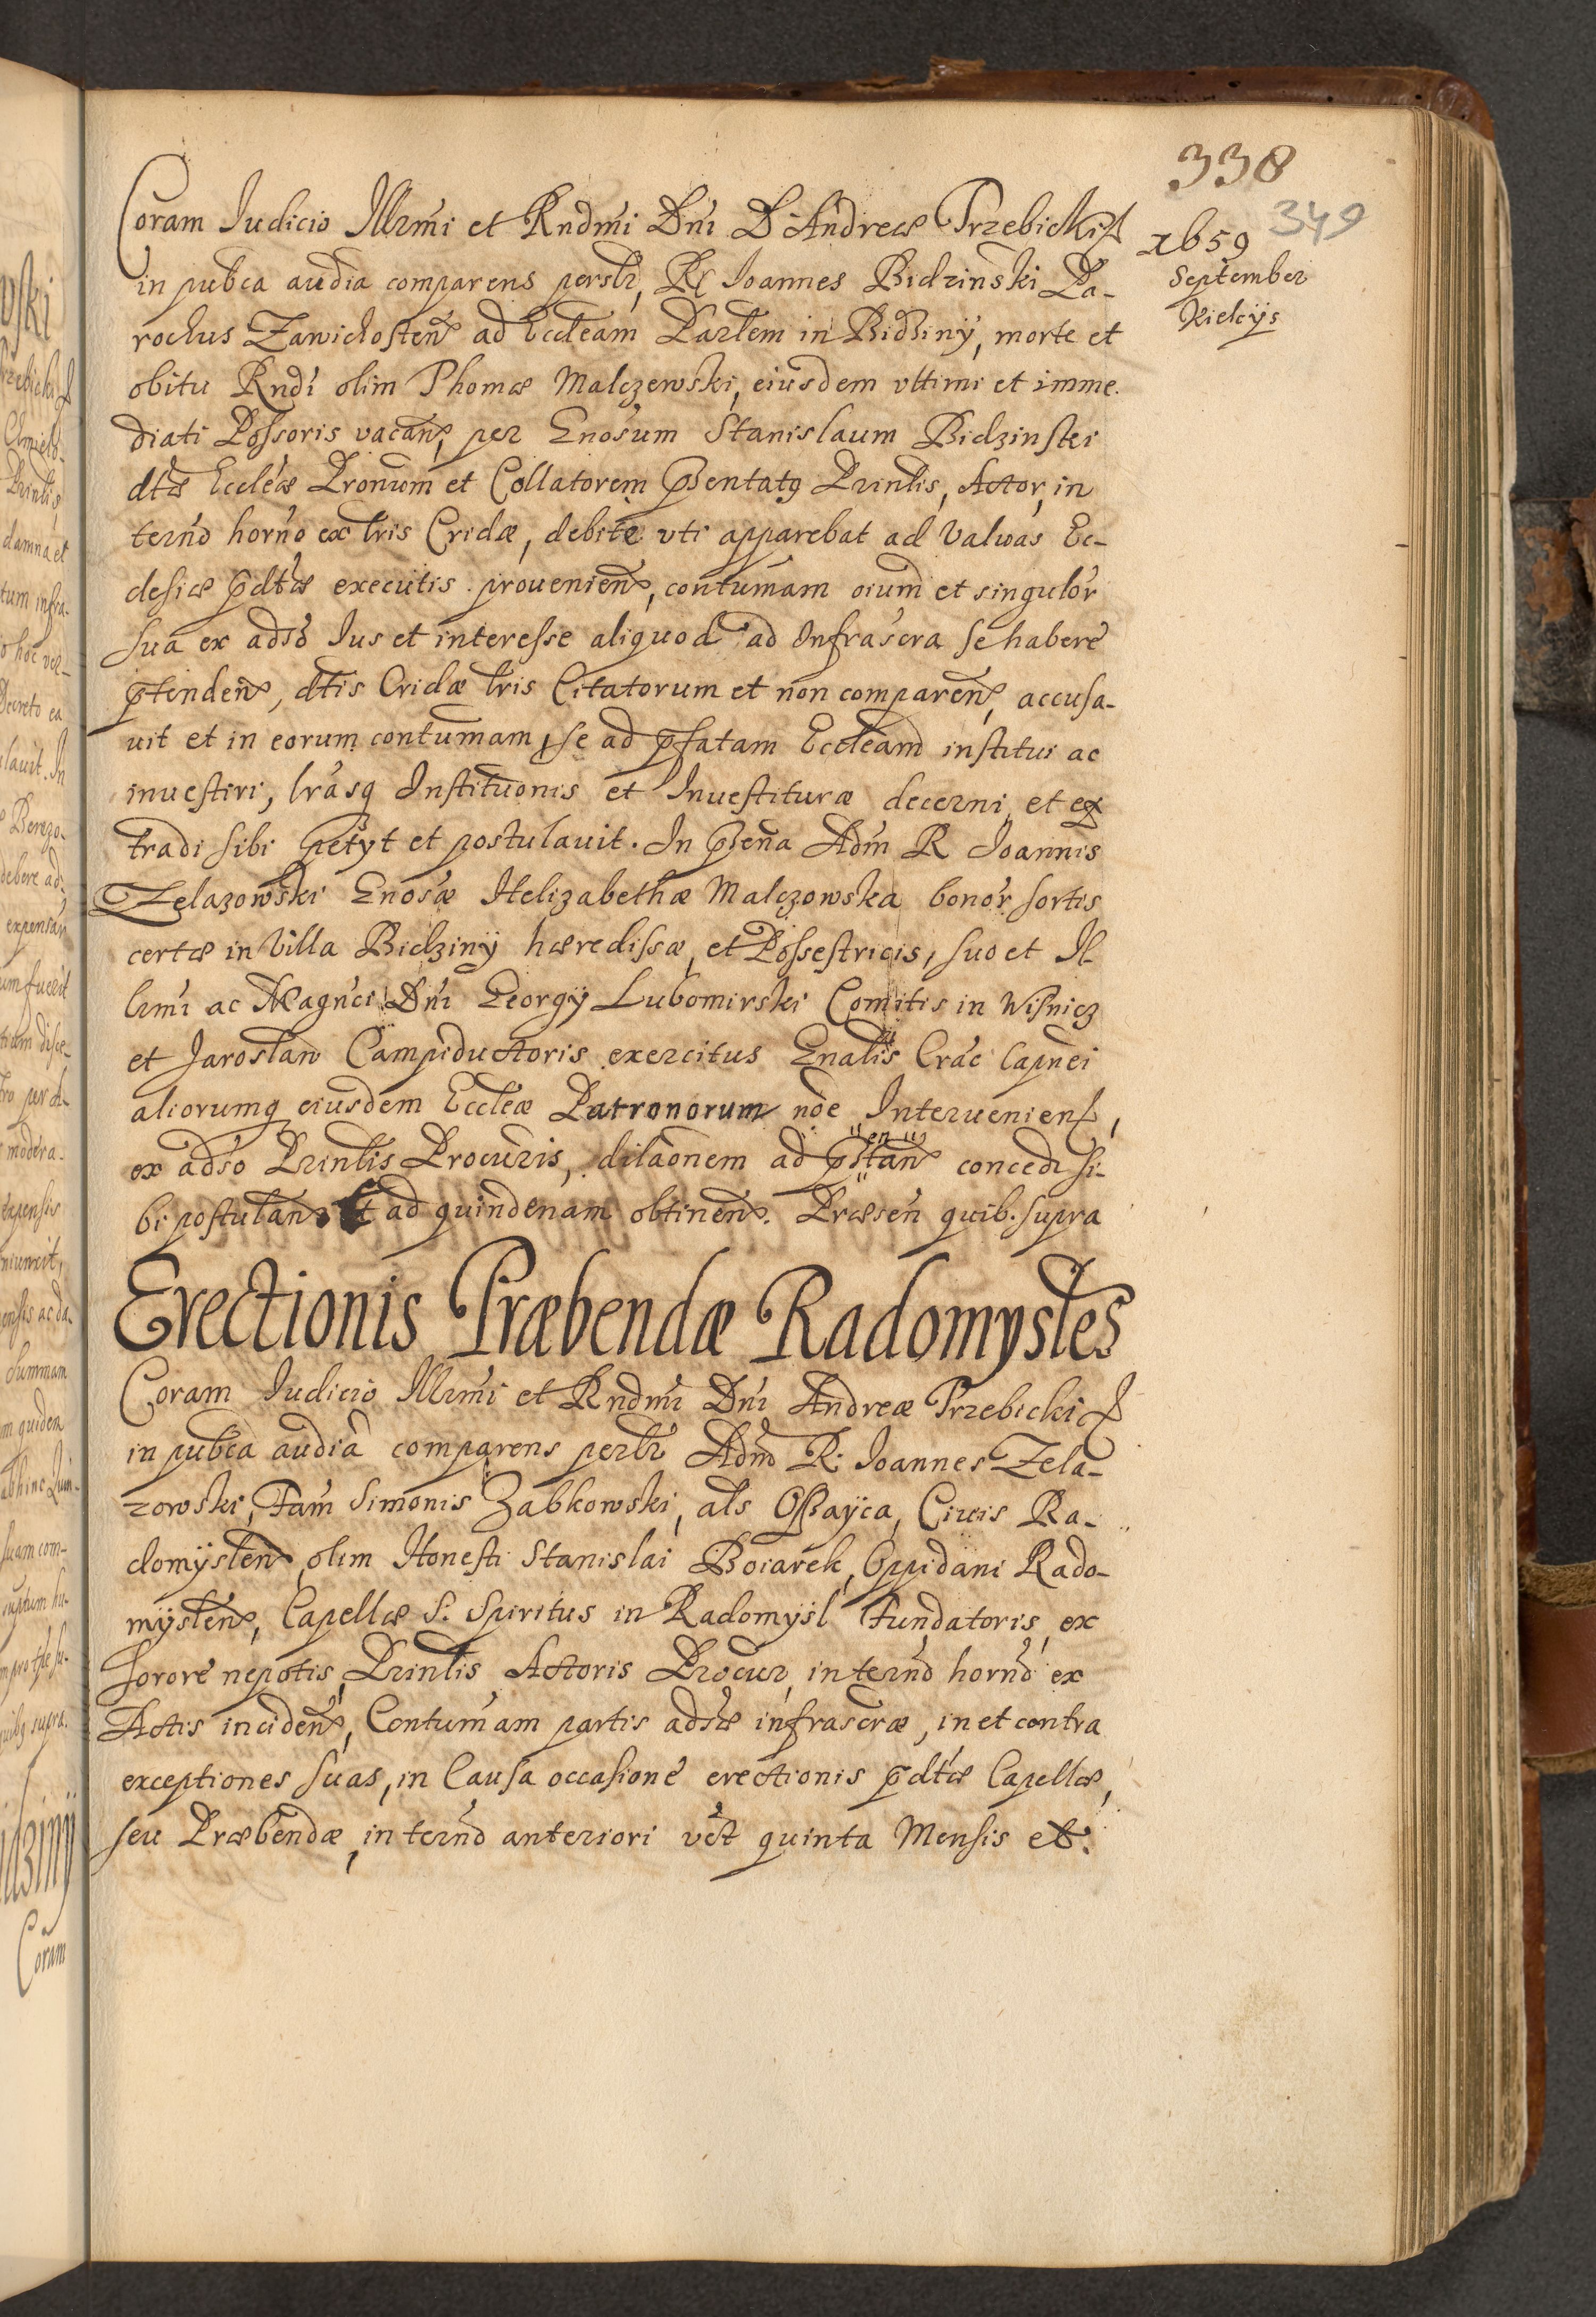 338
349
1659
September
Kielcijs
Coram Iudicio Illrmi et Rndmi Dni D Andreæ Trzebicki &
in pubca audia comparens persłr, R Ioannes Bidzinski Pa-
rochus Zawichosten ad Eccleam Parlem in Bidziny, morte et
obitu Rndi olim Thomæ Malczewski, eiusdem vltimi et imme
diati Possoris vacan, per Gnosum Stanislaum Bidzinski
dtæ Eccleæ Pronum et Collatorem Psentatq Prinlis, Actor, in
termo horno ex lris Cridæ, debite vti apparebat ad Valvas Ec-
clesiæ pdtæ executis prouenien, contumam oium et singulor
sua ex adso Ius et interesse aliquod ad Infrascra se habere
ptenden, dtis Cridæ lris Citatorum et non comparen, accusa-
uit et in eorum contumam, se ad pfatam Eccleam institui ac
inuestiri, lrasq Institunis et Inuestituræ decerni et ex
tradi sibi petyt et postulauit. In Psena Adm R Ioannis
Zelazowski Gnosæ Helizabethæ Malczowska bonor sortis
certæ in Villa Bidziny hæredissæ, et Possestricis, suo et Il
lrmi ac Magnci Dni Georgij Lubomirski Comitis in Wisnicz
et Jaroslaw Campiductoris exercitus Gnalis Crac Capnei
aliorumq eiusdem Eccleæ Patronorum noe Interuenien,
ex adso Prinlis Procuris, dilaonem ad pstan concedi si-
"en"
bi postulan et ad quindenam obtinen. Præsen quib. supra
Erectionis Præbendæ Radomysles
Coram Iudicio Illrmi et Rndmi Dni Andreæ Trzebicki &
in pubca audia comparens perslr Adm R: Ioannes Zela-
zowski, Fam Simonis Zabkowski, als Ossayca, Ciuis Ra-
domyslen, olim Honesti Stanislai Boiarek, Oppidani Rado-
myslen, Capellæ S. Spiritus in Radomysl Fundatoris, ex
sorore nepotis, Prinlis Actoris Procur, in termo horno ex
Actis inciden, Contumam partis adsæ infrascræ, in et contra
exceptiones suas, in Causa occasione erectionis pdtæ Capellæ,
seu Præbendæ, in termo anteriori vet quinta Mensis et.